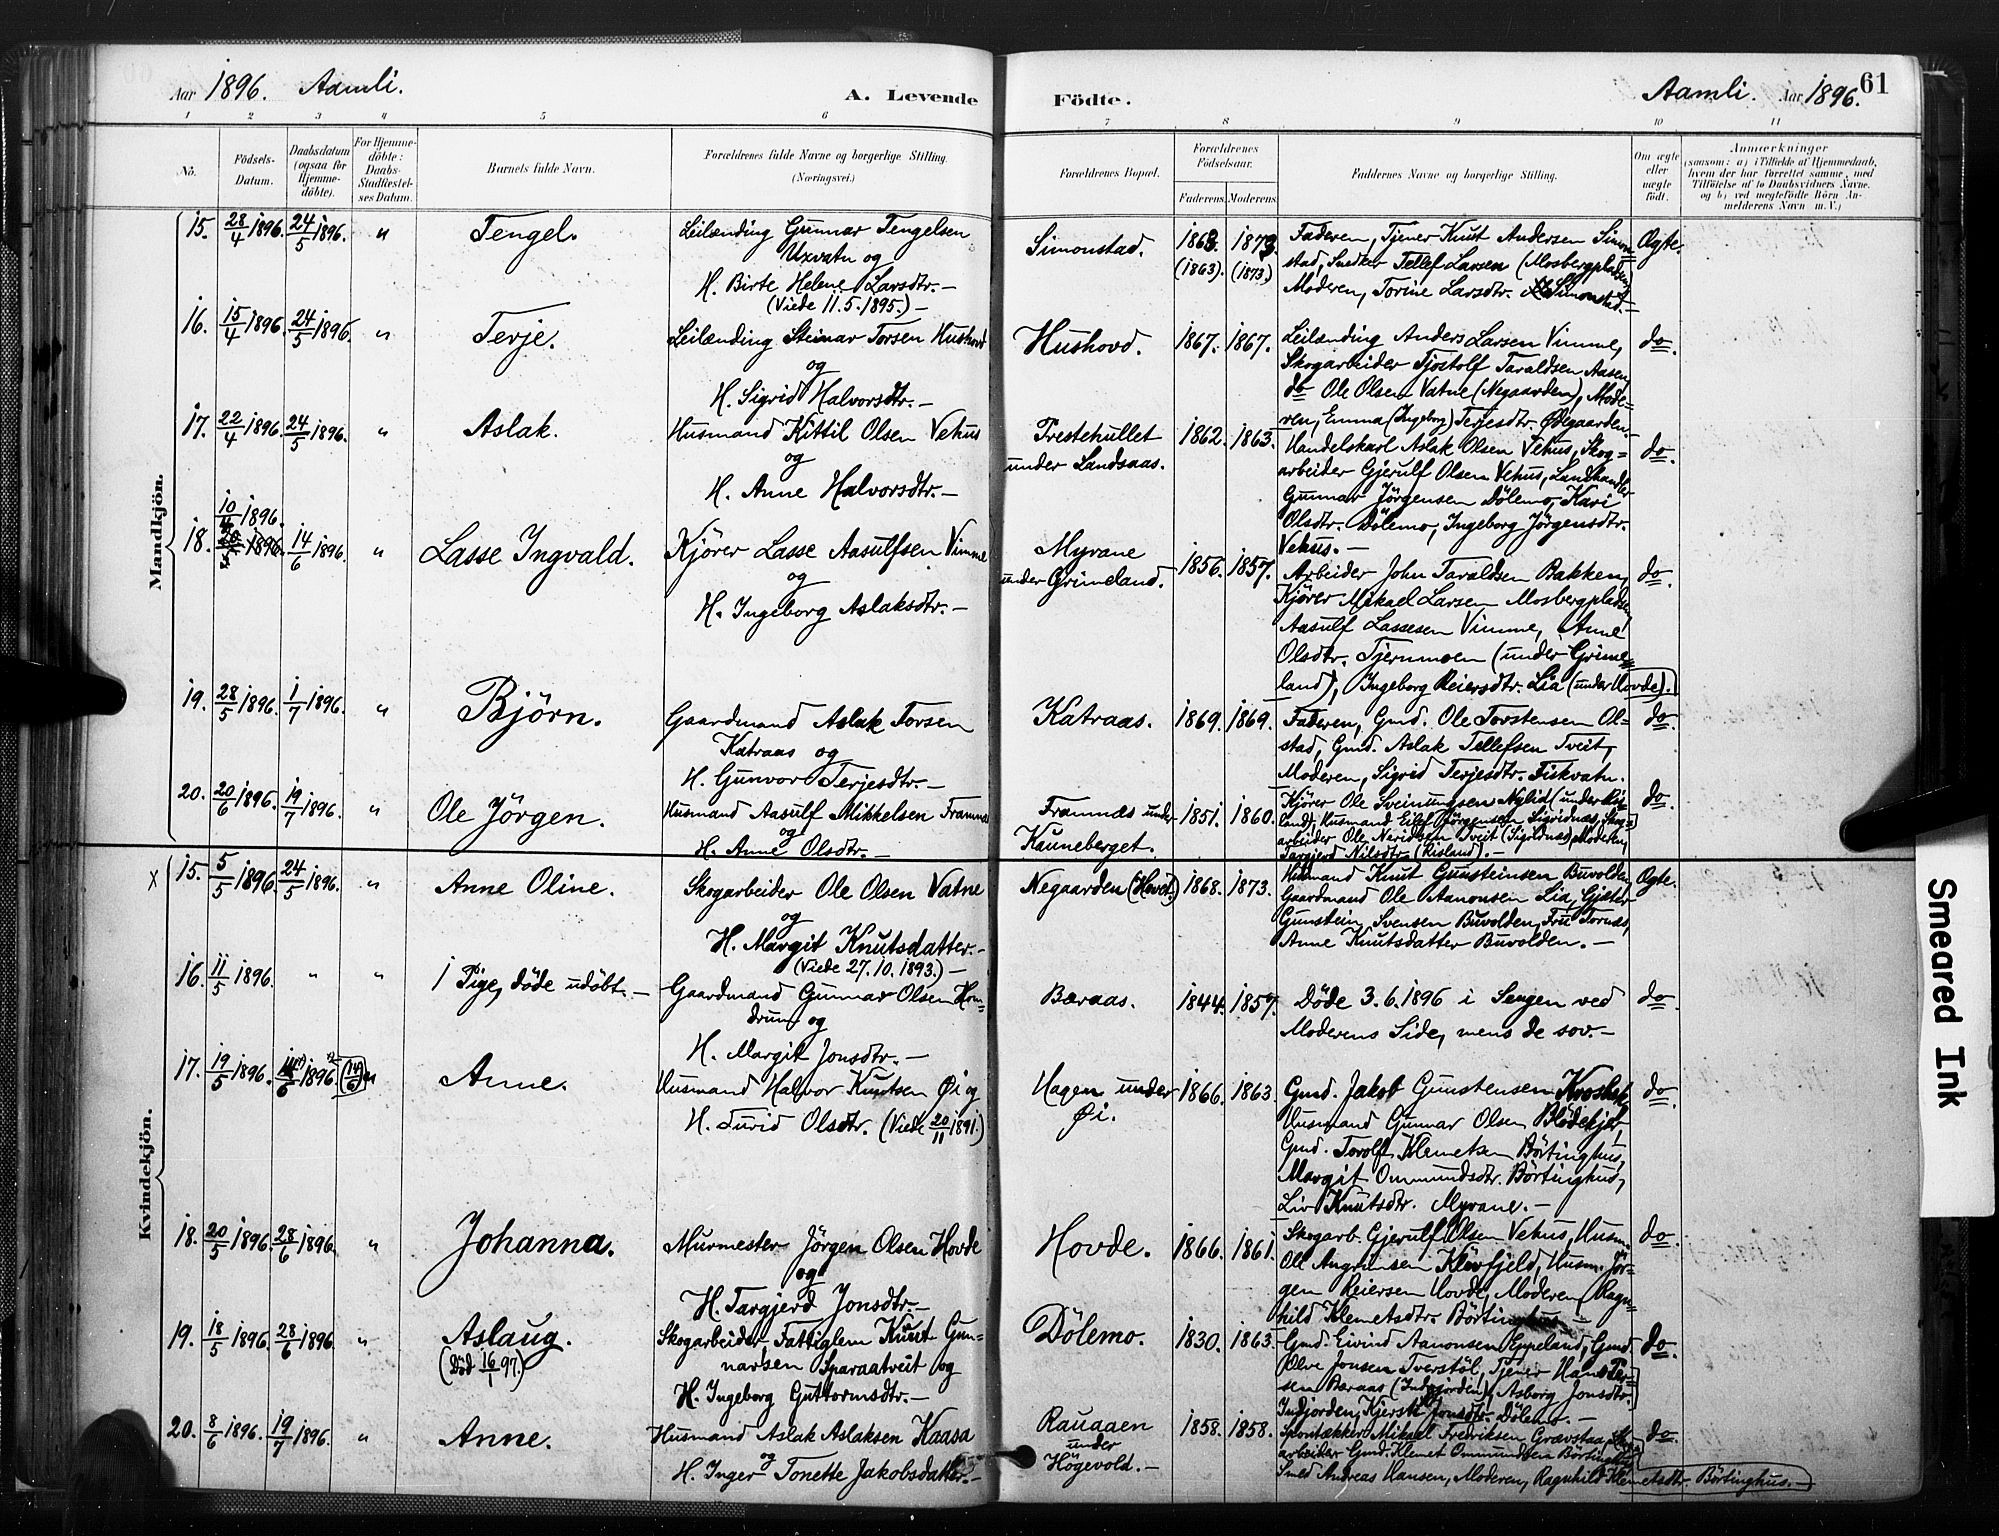 Aar 1896. Aamli. A. Levende Födte. Aamli. Aar 1896. 61
1 2 3 4 5 6 7 8 9 10 11
No. Födsels-Datum. Daabsdatum (ogsaa for Hjemme-döbte). For Hjemme-döbte: Daabs-Stadfæstel-ses Datum. Barnets fulde Navn. Forældrenes fulde Navne og borgerlige Stilling. (Næringsvei.) Forældrenes Bopæl. Forældrenes Födselsaar. Faderens. Moderens. Faddernes Navne og borgerlige Stilling. Om ægte eller uægte födt. Anmærkninger (saasom: a) i Tilfælde af Hjemmedaab, hvem der har forrettet samme, med Tilföielse af to Daabsvidners Navne. og b) ved uægtefödte Börn An-melderens Navn m. V.)
Mandkjön.
15. 28/4 1896. 24/5 1896. " Tengel. Leilænding Gunnar Tengelsen
Uxvatn og
H. Birte Helene Larsdtr. —
(Viede 11.5.1895.) —
Simonstad. 1863. 1873.
(1863). (1873)
Faderen, Tjener Knut Andersen Simon=
stad, Snedker Tellef Larsen (Mosbergpladsen)
Moderen, Torine Larsdtr. Simonstad. —
Ægte.
16. 15/4 1896. 24/5 1896. " Terje. Leilænding Steinar Torsen Hushovd
og
H. Sigrid Halvorsdtr. —
Hushovd. 1867. 1867.
Leilænding Anders Larsen Vimme,
Skogarbeider Tjostolf Taraldsen Aasen,
do Ole Olsen Vatne (Negaarden), Mode-
ren, Emma (Ingeborg) Terjesdtr. Ødegaarden. —
do.
17. 22/4 1896. 24/5 1896. " Aslak. Husmand Kittil Olsen Vehus
og
H. Anne Halvorsdtr. —
Prestehullet
under Landsaas.
1862. 1863.
Handelskarl Aslak Olsen Vehus, Skog=
arbeider Gjerulf Olsen Vehus, Landhandler
Gunnar Jörgensen Dölemo, Kari
Olsdtr. Dölemo, Ingeborg Jörgensdtr.
Vehus. —
do.
18. 10/4 1896. 14/6 1896. " Lasse Ingvald. Kjörer Lasse Aasulfsen Vimme
og
H. Ingeborg Aslaksdtr. —
Myrane
under Grimeland.
1856. 1857.
Arbeider John Taraldsen Bakken,
Kjörer Mikael Larsen Mosbergpladsen,
Aasulf Lassesen Vimme, Anne
Olsdtr. Tjernmoen (under Grime=
land), Ingeborg Reiersdtr. Lia (under Hovde).
do
19. 28/5 1896. 1/7 1896. " Björn. Gaardmand Aslak Torsen
Katraas og
H. Gunvor Terjesdtr. —
Katraas. 1869. 1869.
Faderen, Gmd. Ole Torstensen Ol=
stad, Gmd. Aslak Tellefsen Tveit,
Moderen, Sigrid Terjesdtr. Fiskvatn.
do
20. 20/6 1896. 19/7 1896. " Ole Jörgen. Husmand Aasulf Mikkelsen Framnes
og
H. Anne Olsdtr. —
Framnæs under
Kauneberget.
1851. 1860.
Kjörer Ole Sveinungsen Nylid (under Ris=
land), Husmand Eilef Jörgensen Sigridnæs, Skog=
arbeider Ole Tveit (Sigridnæs), Moderen,
Targjerd Nilsdtr. (Risland). —
do.
Kvindekjön.
X 15. 5/5 1896. 24/5 1896. " Anne Oline. Skogarbeider Ole Olsen Vatne
og
H. Margit Knutsdatter. —
(Viede 27.10.1893.) —
Negaarden (Hovd.) 1868. 1873.
Husmand Knut Gunsteinsen Buvolden,
Gaardmand Ole Aanonsen Lia, Gjæter
Gunstein Svensen Buvolden, Fru Tornæs,
Anne Knutsdatter Buvolden. —
Ægte.
16. 11/5 1896. " " 1 Pige, döde udöbt. — Gaardmand Gunnar Olsen Hom=
drum og
H. Margit Jonsdtr. —
Bæraas. 1844. 1857.
Döde 3.6.1896 i Sengen ved
Moderens Side, mens de sov. —
do
17. 19/5 1896. 14/6 1896. (14/6) Anne. Husmand Halvor Knutsen Øi og
H. Turid Olsdtr. (Viede 20/11 1891.)
Hagen under
Øi.
1866. 1863.
Gmd. Jakob Gunstensen
Husmand Gunnar Olsen Blödekjær,
Gmd. Torolf Klemetsen Börtinghus,
Margit Ommundsdtr. Börtinghus,
Liv Knutsdtr. Myrane. —
do
18. 20/5 1896. 28/6 1896. " Johanna. Murmester Jörgen Olsen Hovde
og
H. Targjerd Jonsdtr. —
Hovde. 1866. 1861.
Skogarb. Gjerulf Olsen Vehus, Husm.
Ole Angrimsen Klövfjeld, Husm. Jör-
gen Reiersen Hovde, Moderen, Ragn=
hild Klemetsdtr. Börtinghus. —
do.
19. 18/5 1896. 28/6 1896. " Aslaug.
(död 16/1 97.)
Skogarbeider, Fattiglem Knut Gun-
narsen Sparaatveit og
H. Ingeborg Guttormsdtr. —
Dölemo. 1830. 1863.
Gmd. Eivind Aanonsen Eppeland, Gmd.
Olve Jonsen Tverstöl, Tjener Hans Ter-
sen Bæraas (Indjorden), Asborg Jonsdtr.
Indjorden, Kjersti Jonsdtr. Dölemo. —
do.
20. 8/6 1896. 19/7 1896. " Anne. Husmand Aslak Aslaksen Kaasa
og
H. Inger Tonette Jakobsdatter. —
Rauaaen
under
Högevold. —
1858. 1858.
Spontækker Mikael Fredriksen Grævstaa,
arbeider Gmd. Klemet Ommundsen Börtinghus,
Smed Andreas Hansen, Moderen, Ragnhild Klemetsdtr. Börtinghus. —
do.
Smeared Ink